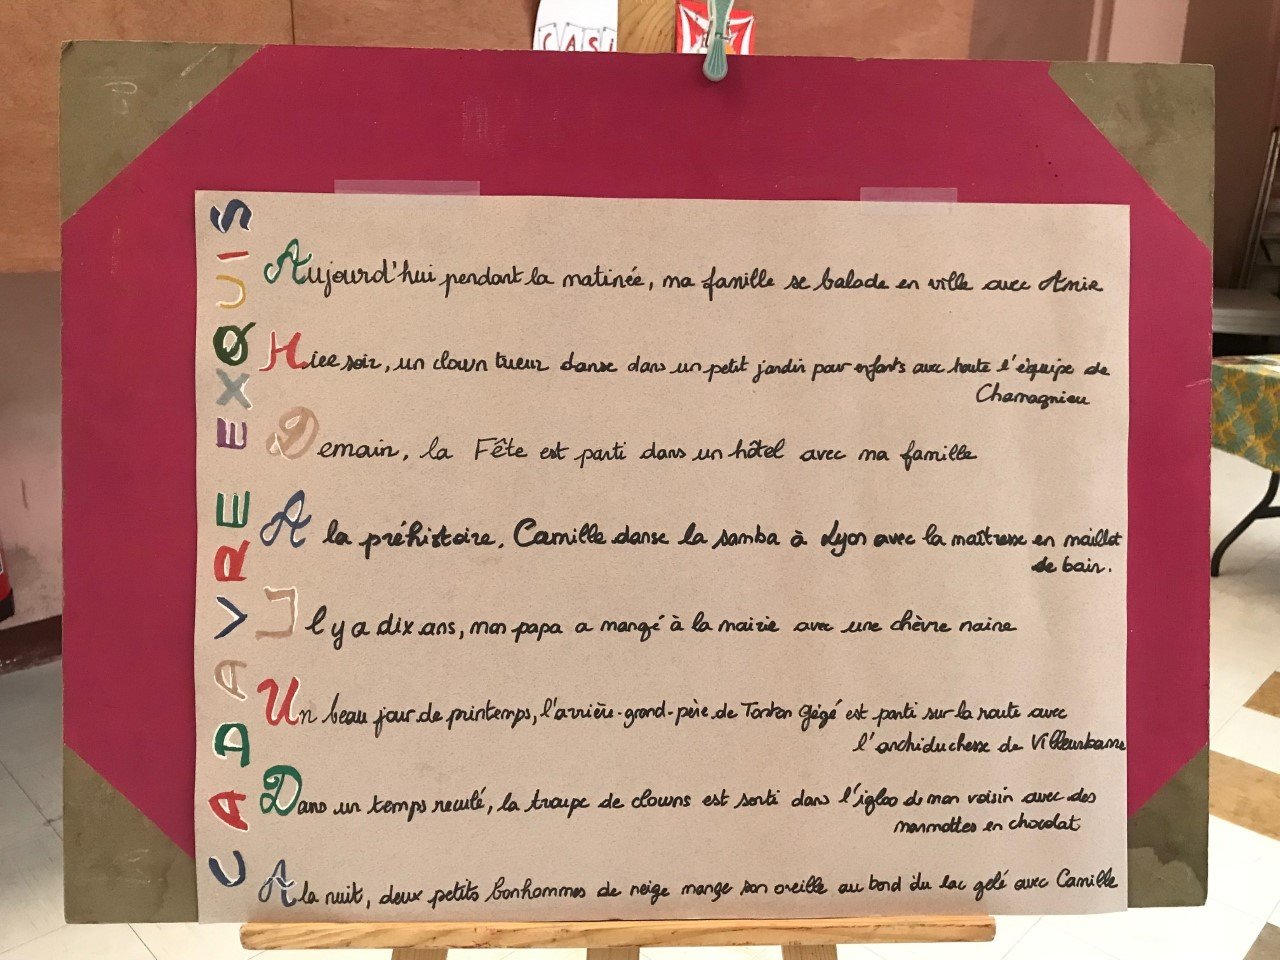 CASI
CADAVRE EXQUIS
Aujourd'hui pendant la matinée, ma famille se balade en ville avec Amir
Hier soir, un clown tueur danse dans un petit jardin pour enfants avec toute l'équipe de
Chamagnieu
Demain, la Fête est parti dans un hôtel avec ma famille
A la préhistoire, Camille danse la samba à Lyon avec la maîtresse en maillot
de bain.
Il y a dix ans, mon papa a mangé à la mairie avec une chèvre naine
Un beau jour de printemps, l'arrière-grand-père de Tonton Gégé est parti sur la route avec
l'archiduchesse de Villeurbanne
Dans un temps reculé, la troupe de clowns est sorti dans l'igloo de mon voisin avec des
marmottes en chocolat
A la nuit, deux petits bonhommes de neige mange son oreille au bord du lac gelé avec Camille